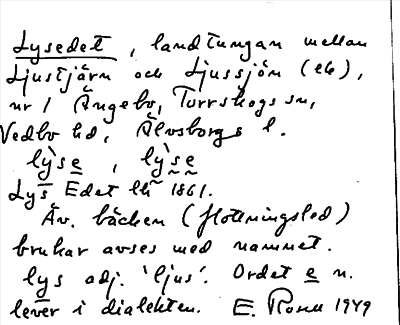 Lysedet, landtungan mellan
Ljustjärn och Ljussjön (ek),
nr 1 Ängebo, Torrskogs sn,
Vedbo hd, Älvsborgs l.
lỳse, lỳse
Lys Edet 1861.
Äv. bäcken (flottningsled)
brukar avses med namnet.
lys adj. 'ljus'. Ordet e n.
lever i dialekten. E. Rosell 1949